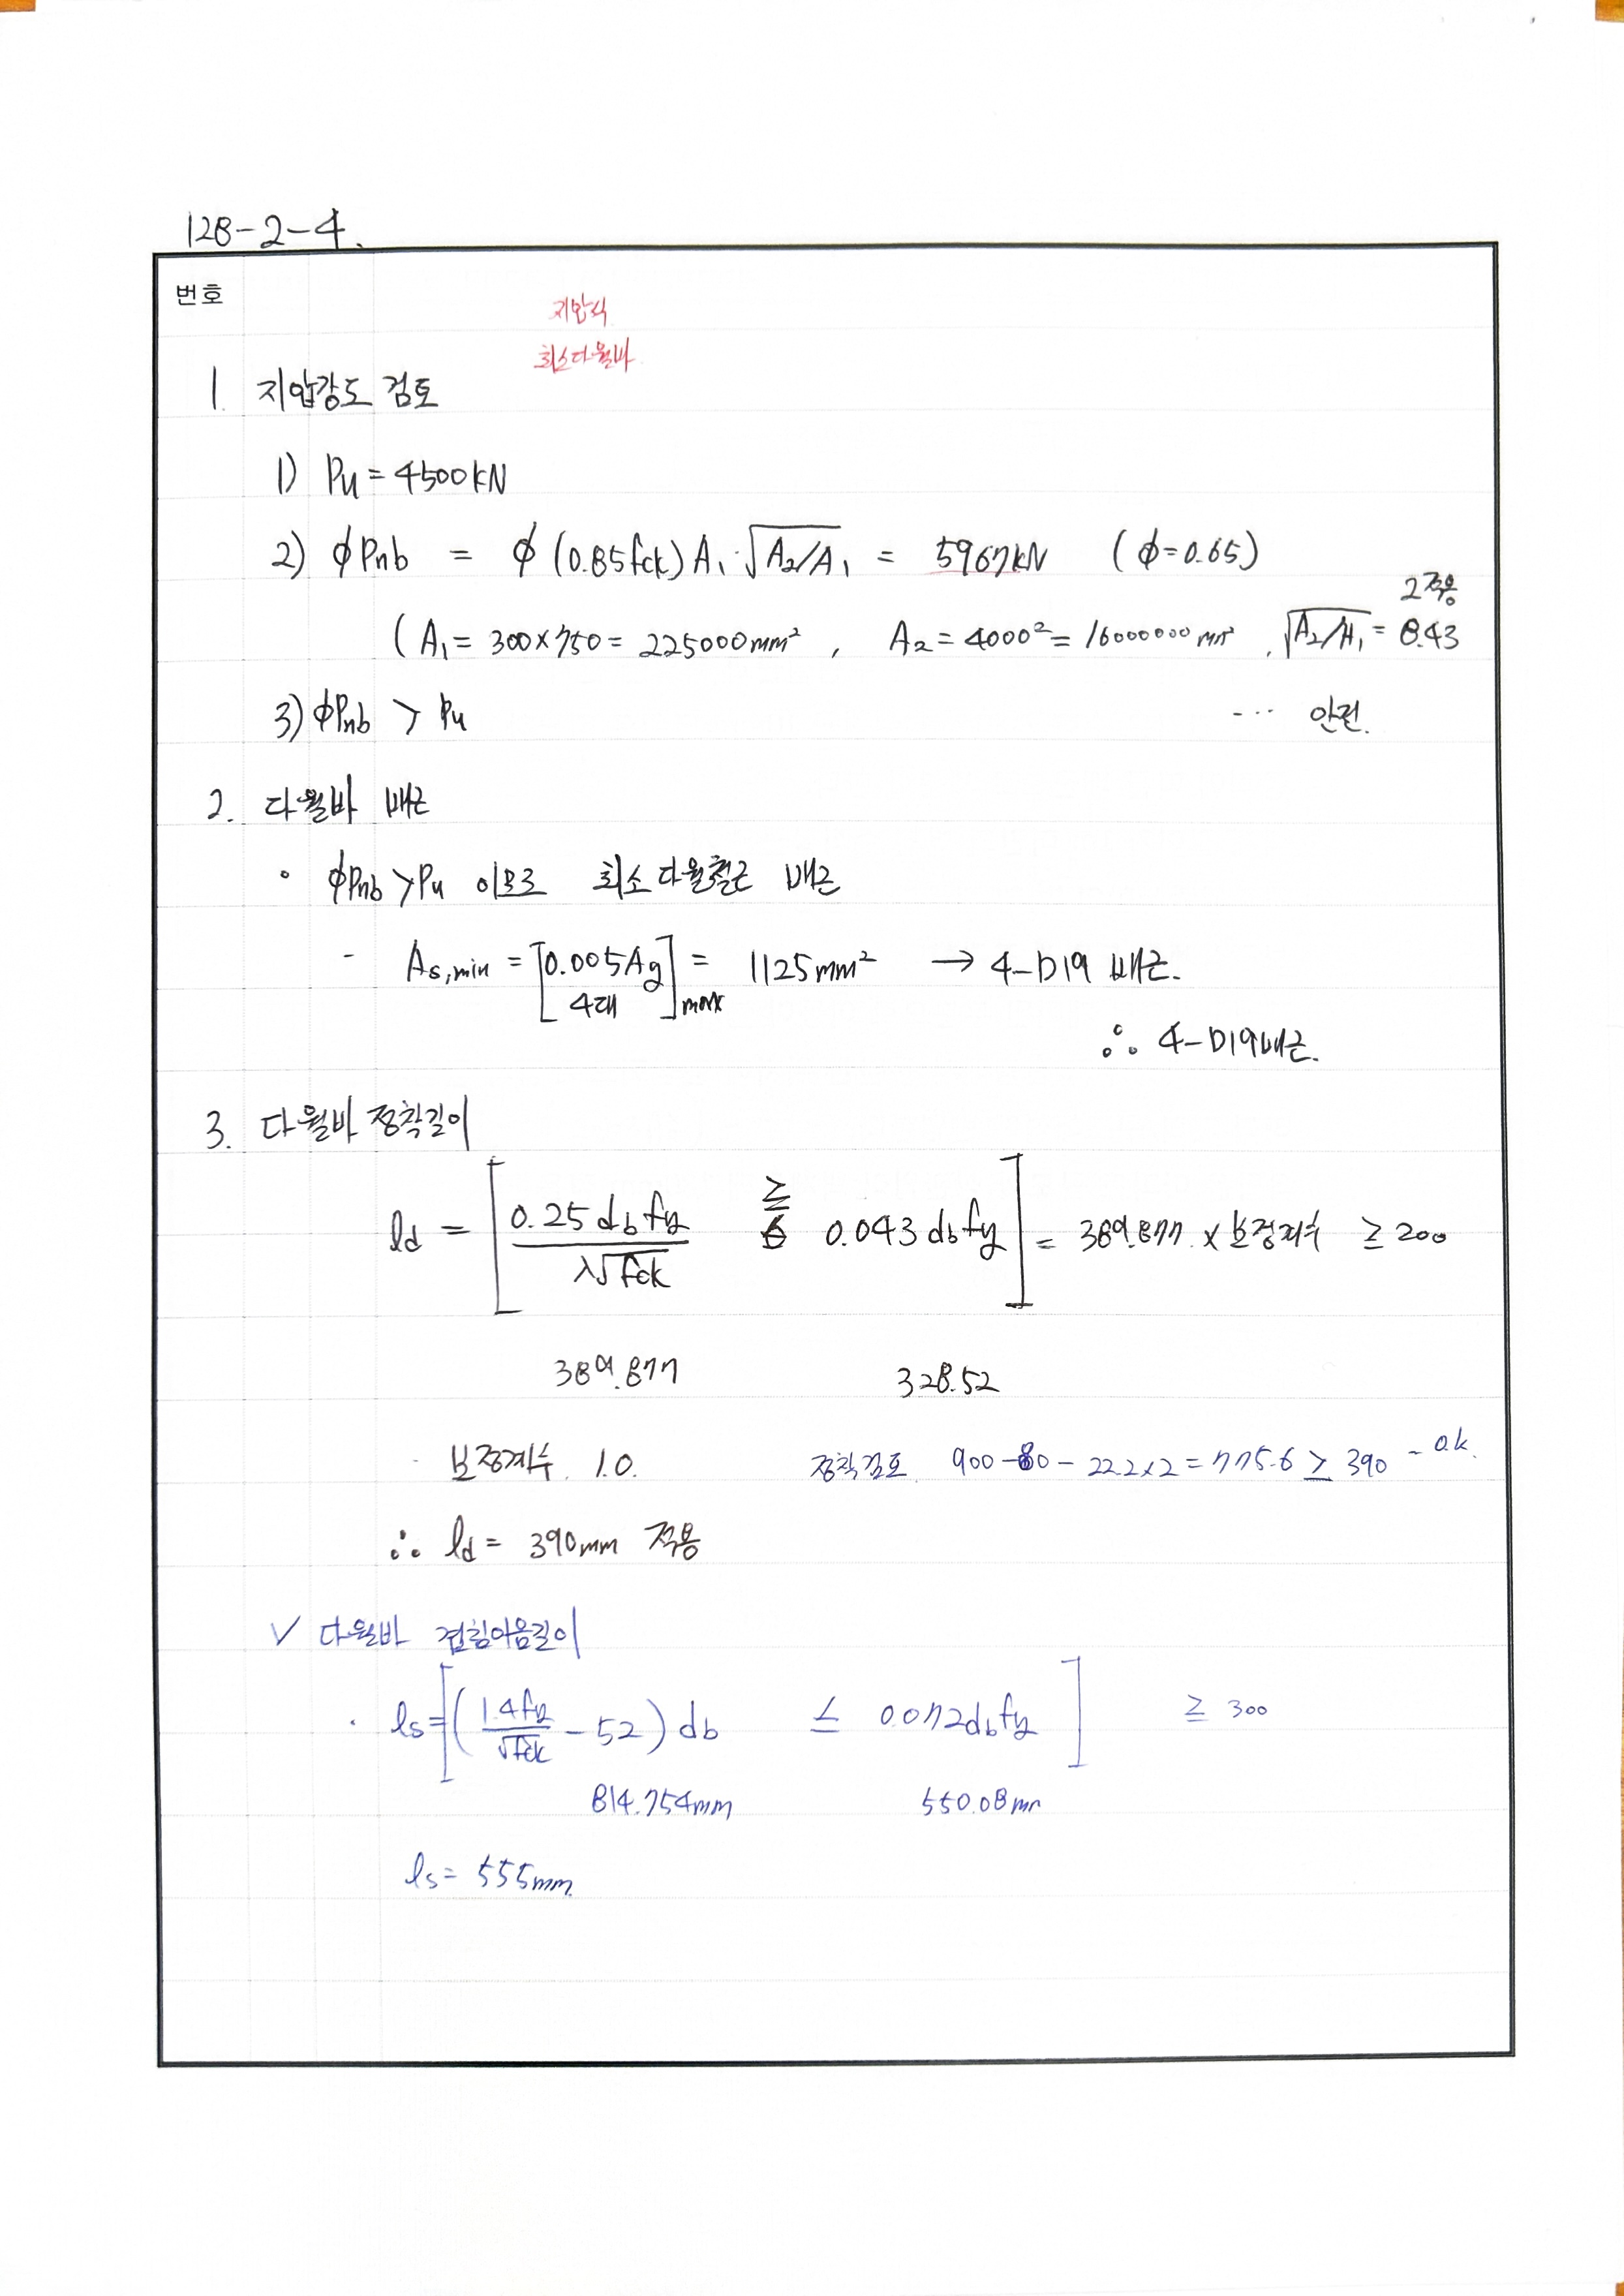 128-2-4.
번호
지압식
최소다월바
1. 지압강도 검토
1) Pu = 4500kN
2) ϕPnb = ϕ (0.85fck) A₁ · √A₂/A₁ = 5967kN (ϕ=0.65)
2적용
( A₁ = 300×750 = 225000mm² , A₂ = 4000² = 16000000 mm² , √A₂/A₁ = 8.43
3) ϕPnb > Pu --- 안전.
2. 다월바 배근
∘ ϕPnb > Pu 이므로 최소다월철근 배근
- As,min = [0.005Ag 4대]max = 1125mm² → 4-D19 배근.
∴ 4-D19배근.
3. 다월바 정착길이
ld = [ 0.25 db fy / λ√fck ≥ 0.043 db fy ] = 389.877 × 보정계수 ≥ 200
389.877 328.52
· 보정계수 1.0. 정착검토 900-80-22.2×2 = 775.6 ≥ 390 - o.k.
∴ ld = 390mm 적용
√ 다월바 겹침이음길이
· ls = [ ( 1.4fy / √fck - 52 ) db ≤ 0.072dbfy ] ≥ 300
814.754mm 550.08mm
ls = 555mm.